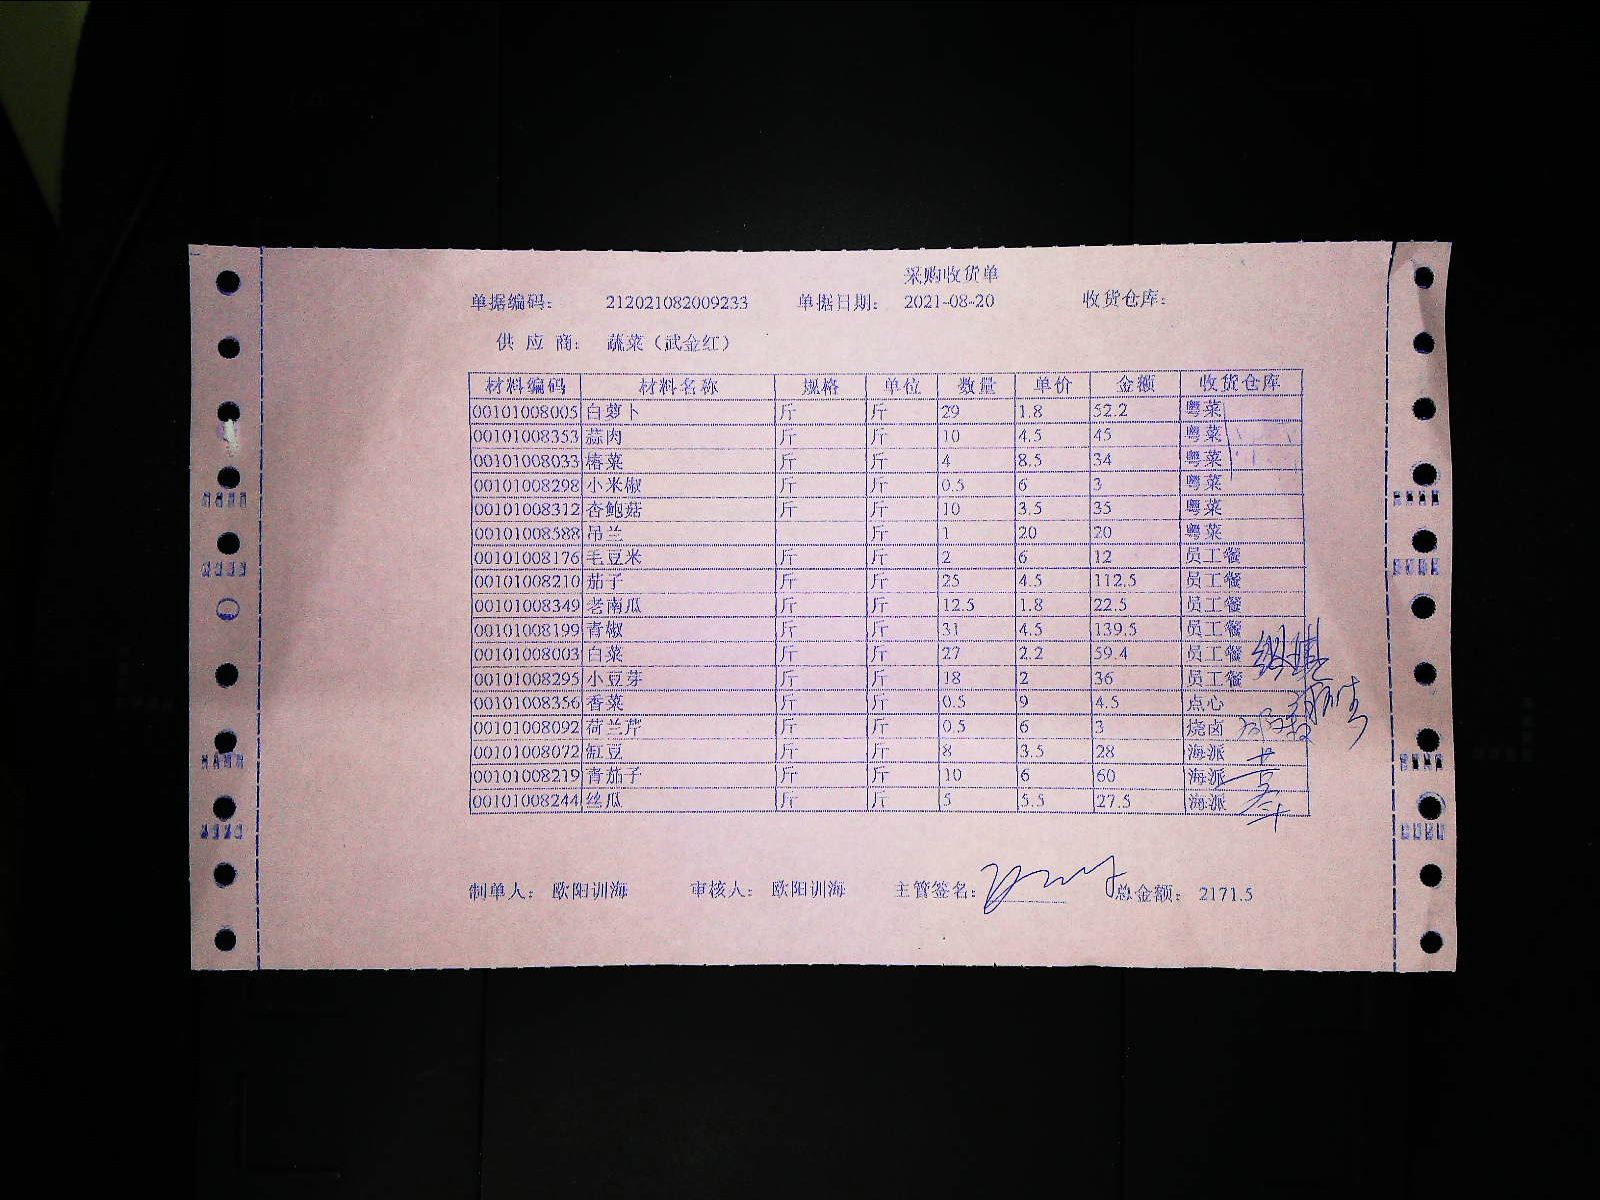 采购收货单
单据编码： 212021082009233 单据日期： 2021-08-20 收货仓库：
供 应 商： 蔬菜（武金红）
材料编码 材料名称 规格 单位 数量 单价 金额 收货仓库
00101008005 白萝卜 斤 斤 29 1.8 52.2 粤菜
00101008353 蒜肉 斤 斤 10 4.5 45 粤菜
00101008033 椿菜 斤 斤 4 8.5 34 粤菜
00101008298 小米椒 斤 斤 0.5 6 3 粤菜
00101008312 杏鲍菇 斤 斤 10 3.5 35 粤菜
00101008588 吊兰 斤 1 20 20 粤菜
00101008176 毛豆米 斤 斤 2 6 12 员工餐
00101008210 茄子 斤 斤 25 4.5 112.5 员工餐
00101008349 老南瓜 斤 斤 12.5 1.8 22.5 员工餐
00101008199 青椒 斤 斤 31 4.5 139.5 员工餐
00101008003 白菜 斤 斤 27 2.2 59.4 员工餐
00101008295 小豆芽 斤 斤 18 2 36 员工餐
00101008356 香菜 斤 斤 0.5 9 4.5 点心
00101008092 荷兰芹 斤 斤 0.5 6 3 烧卤
00101008072 缸豆 斤 斤 8 3.5 28 海派
00101008219 青茄子 斤 斤 10 6 60 海派
00101008244 丝瓜 斤 斤 5 5.5 27.5 海派
制单人： 欧阳训海 审核人： 欧阳训海 主管签名： 总金额： 2171.5